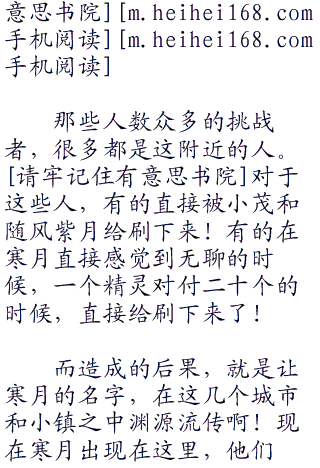 意思书院][m.heihei168.com
手机阅读][m.heihei168.com
手机阅读]
那些人数众多的挑战
者，很多都是这附近的人。
[请牢记住有意思书院]对于
这些人，有的直接被小茂和
随风紫月给刷下来！有的在
寒月直接感觉到无聊的时
候，一个精灵对付二十个的
时候，直接给刷下来了！
而造成的后果，就是让
寒月的名字，在这几个城市
和小镇之中渊源流传啊！现
在寒月出现在这里，他们